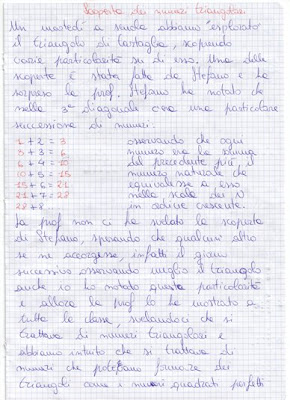 Scoperta dei numeri triangolari
Un martedì a scuola abbiamo "esplorato"
il triangolo di Tartaglia, scoprendo
varie particolarità su di esso. Una delle
scoperte è stata fatta da Stefano e ha
sorpreso la prof. Stefano ha notato che
nella 3ª diagonale c'era una particolare
successione di numeri:
1 + 2 = 3 osservando che ogni
3 + 3 = 6 numero era la somma
6 + 4 = 10 del precedente più, il
10 + 5 = 15 numero naturale che
15 + 6 = 21 equivalesse a esso
21 + 7 = 28 nella scala dei N
28 + 8... in ordine crescente.
La prof non ci ha svelato la scoperta
di Stefano, sperando che qualcun altro
se ne accorgesse, infatti il giorno
successivo osservando meglio il triangolo
anche io ho notato questa particolarità
e allora la prof lo ha mostrato a
tutta la classe, svelandoci che si
trattava di numeri triangolari e
abbiamo intuito che si trattava di
numeri che potevano formare dei
triangoli come i numeri quadrati perfetti